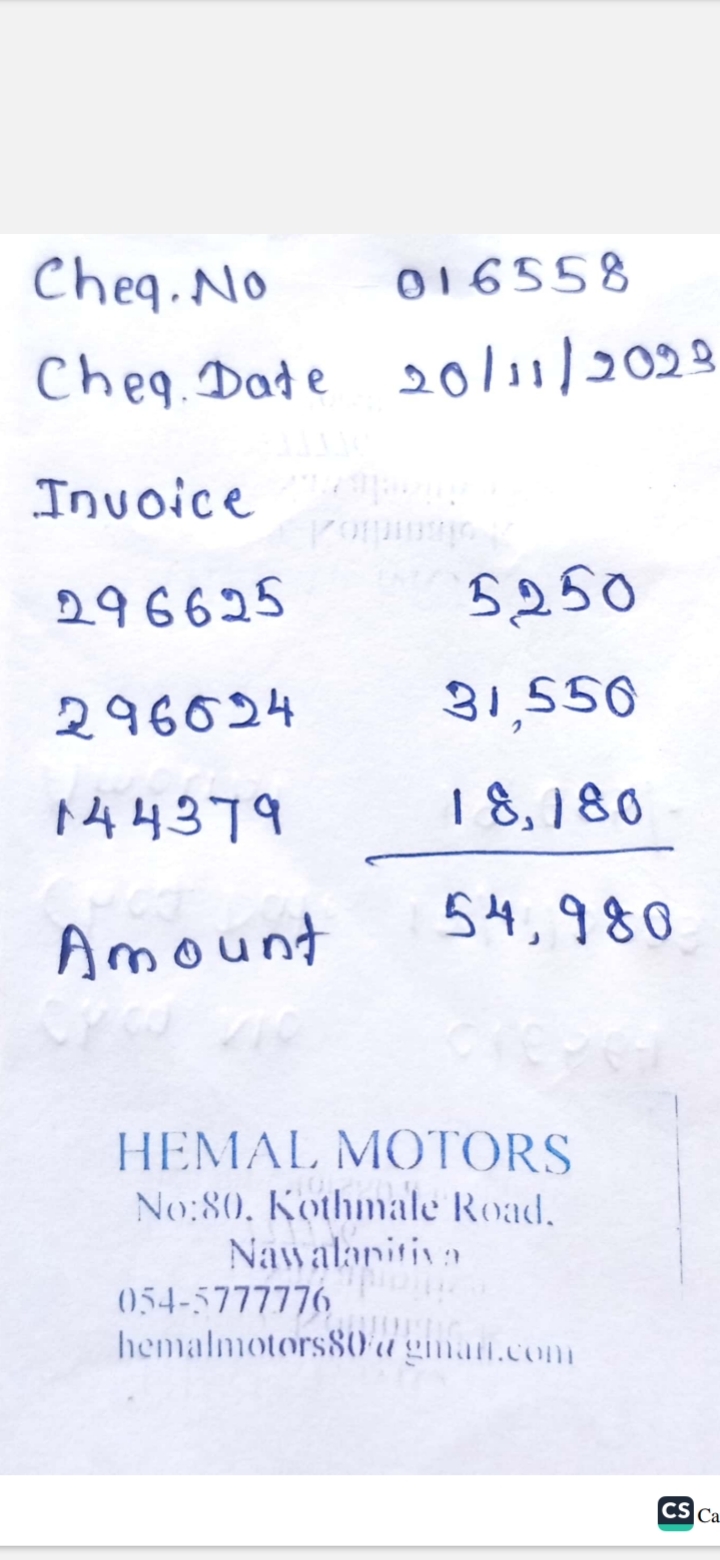 Cheq. No 016558
Cheq. Date 20/11/2023
Invoice
296625 5250
296624 31,550
144379 18,180
Amount 54,980
HEMAL MOTORS
No:80, Kothmale Road.
Nawalapitiya
054-5777776
hemalmotors80@gmail.com
CS Ca